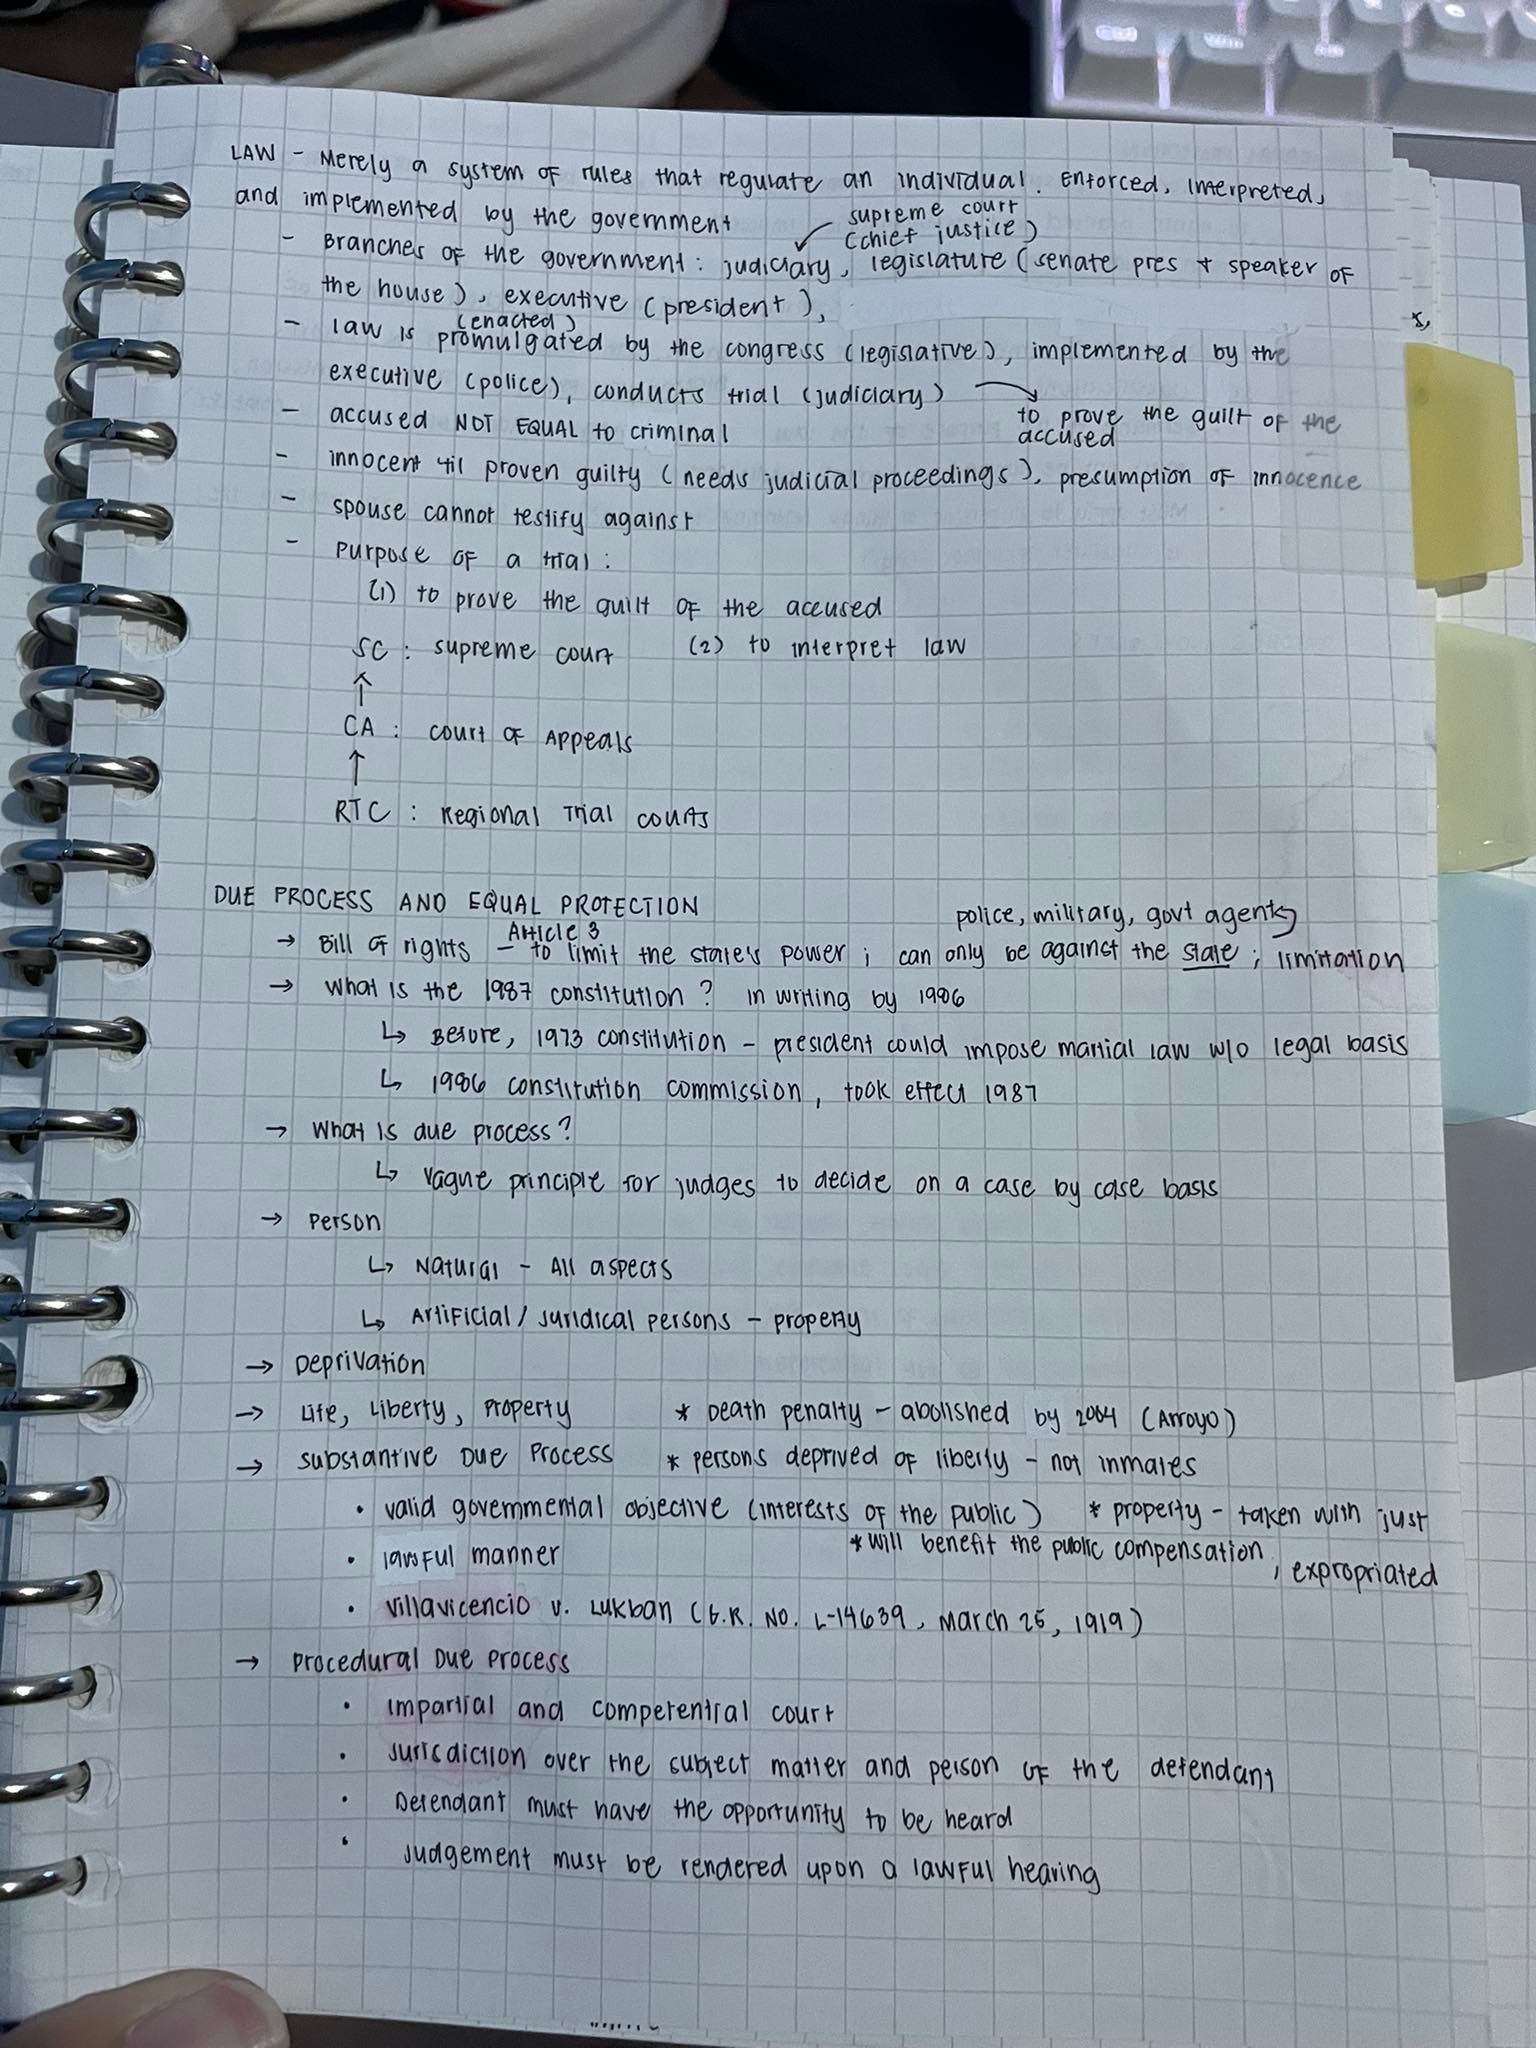 LAW - Merely a system of rules that regulate an individual. Enforced, Interpreted,
and implemented by the government
supreme court
(chief justice)
- Branches of the government: judiciary, legislature (senate pres + speaker of
the house), executive (president),
(enacted)
- law is promulgated by the congress (legislative), implemented by the
executive (police), conducts trial (judiciary) →
to prove the guilt of the
accused
- accused NOT EQUAL to criminal
- innocent 'til proven guilty (needs judicial proceedings), presumption of innocence
- spouse cannot testify against
- Purpose of a trial:
(1) to prove the guilt of the accused
SC : supreme court (2) to interpret law
↑
CA : court of Appeals
↑
RTC : Regional Trial courts
DUE PROCESS AND EQUAL PROTECTION
police, military, govt agents
Article 3
→ Bill of rights - to limit the state's power ; can only be against the state ; limitation
→ What is the 1987 constitution? in writing by 1986
↳ Before, 1973 constitution - president could impose martial law w/o legal basis
↳ 1986 constitution commission, took effect 1987
→ What is due process?
↳ Vague principle for judges to decide on a case by case basis
→ Person
↳ Natural - All aspects
↳ Artificial / Juridical persons - property
→ Deprivation
→ Life, Liberty, Property * Death penalty - abolished by 2004 (Arroyo)
→ Substantive Due Process * persons deprived of liberty - not inmates
• valid governmental objective (interests of the public) * property - taken with just
* will benefit the public compensation, expropriated
• lawful manner
• Villavicencio v. Lukban (G.R. NO. L-14639, March 25, 1919)
→ Procedural Due Process
• impartial and competential court
• Jurisdiction over the subject matter and person of the defendant
• Defendant must have the opportunity to be heard
• Judgement must be rendered upon a lawful hearing